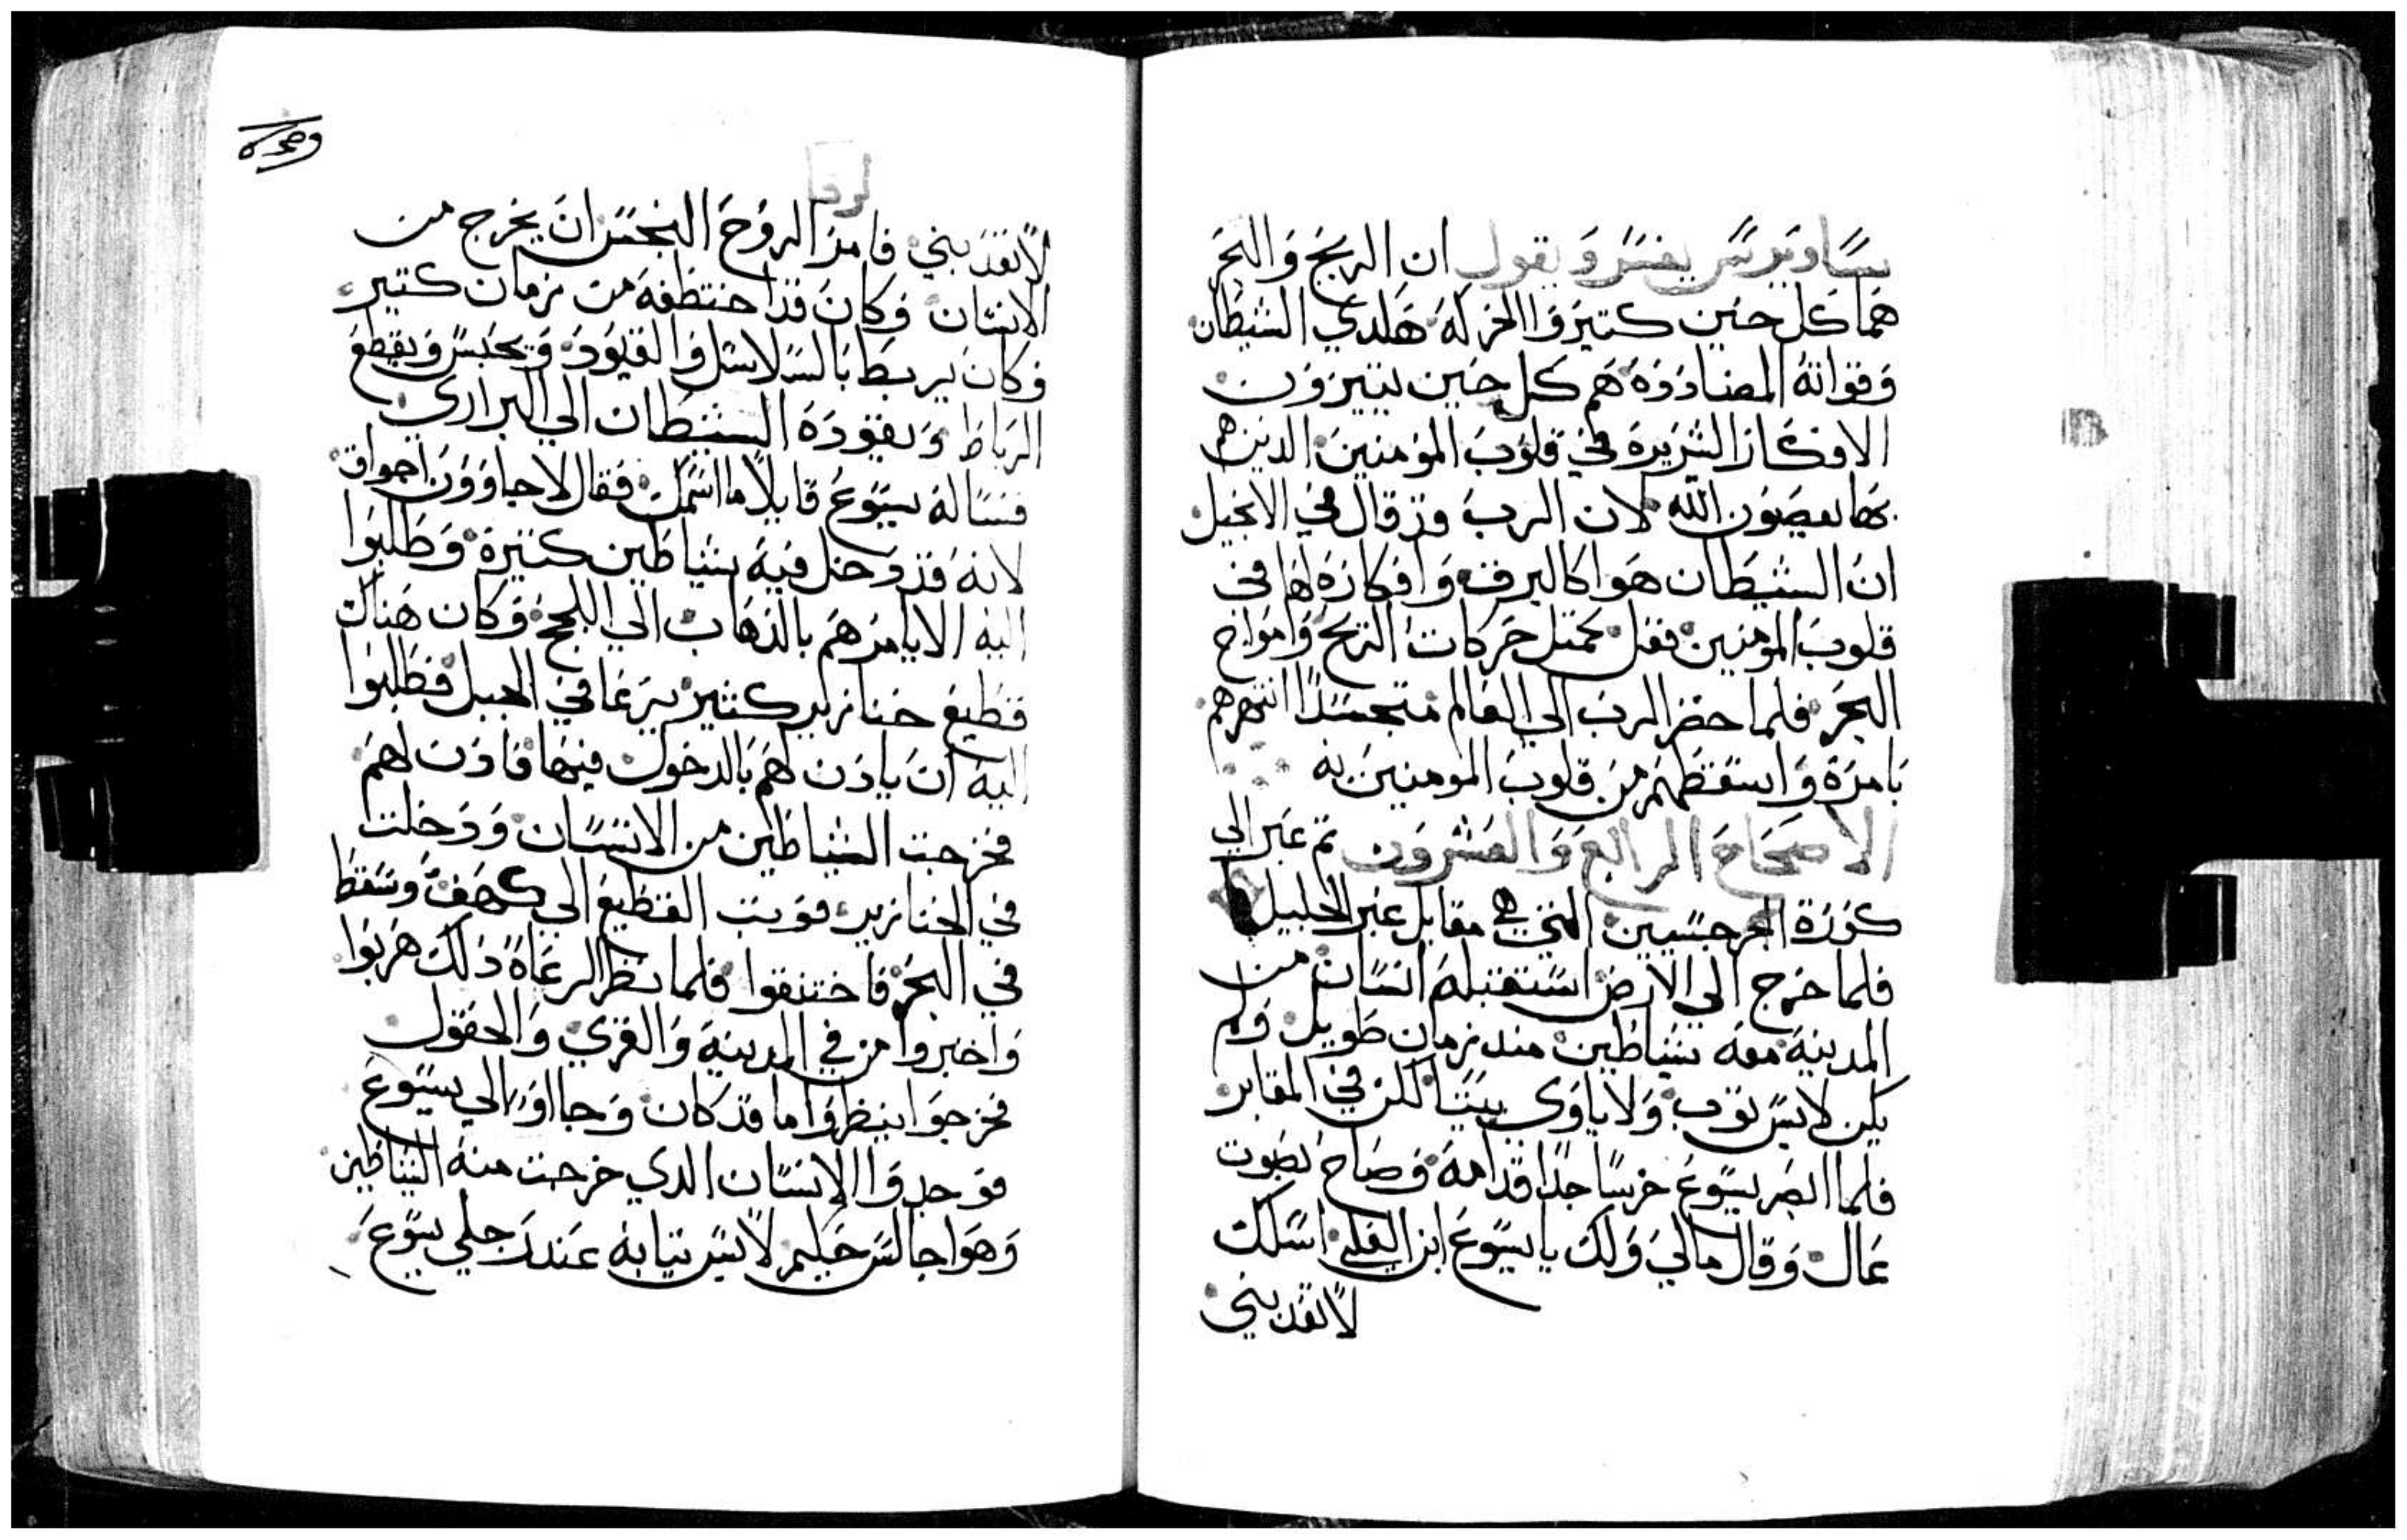 ساويرس يفسر ويقول ان الريح والبحر
هما كل حين كتير والحركه هلدي الشيطان
وقواته المضادوه هم كل حين يتيرون
الافكار الشريره في قلوب المومنين الدين هم
بها يعصون الله لان الرب قد قال في الانجيل
ان الشيطان هوا كالبرق وافكاره لها في
قلوب المومنين فعل كمتل حركات الريح وامواج
البحر فلما حضر الرب الي العالم متجسدا انتهرهم
بامره واسقطهم من قلوب المومنين به
الاصحاح الرابع والعشرون تم عبر الي
كورة الجرجسيين التي هي مقابل عبر الجليل
فلما خرج الي الارض استقبله انسان من
المدينه معه شياطين مند زمان طويل ولم
يكن لابس توب ولا ياوي بيتا لكن في المقابر
فلما ابصر يسوع خر ساجدا قدامه وصاح بصوت
عال وقال مالي ولك يا يسوع ابن العلي اسلك
لا تعدبني
لوقا
لا تعدبني فامر الروح النجس ان يخرج من
الانسان وكان قد اختطفه من زمان كتير
وكان يربط بالسلاسل والقيود ويحبس ويقطع
الرباط ويقوده الشيطان الي البراري
فساله يسوع قايلا ما اسمك فقال لاجاوون اجواق
لانه قد دخل فيه شياطين كتيرة وطلبوا
اليه الا يامرهم بالدهاب الي اللجج وكان هناك
قطيع خنازير كتير يرعا في الجبل فطلبوا
اليه ان يادن لهم بالدخول فيها فادن لهم
فخرجت الشياطين من الانسان ودخلت
في الخنازير فوتب القطيع الي كهف وسقط
في البحر فاختنقوا فلما نظر الرعاة دلك هربوا
واخبروا من في المدينه والقري والحقول
فخرجوا ينظروا ما قد كان وجااوا الي يسوع
فوجدوا الانسان الدي خرجت منه الشياطين
وهوا جالس حليم لابس تيابه عند رجلي يسوع